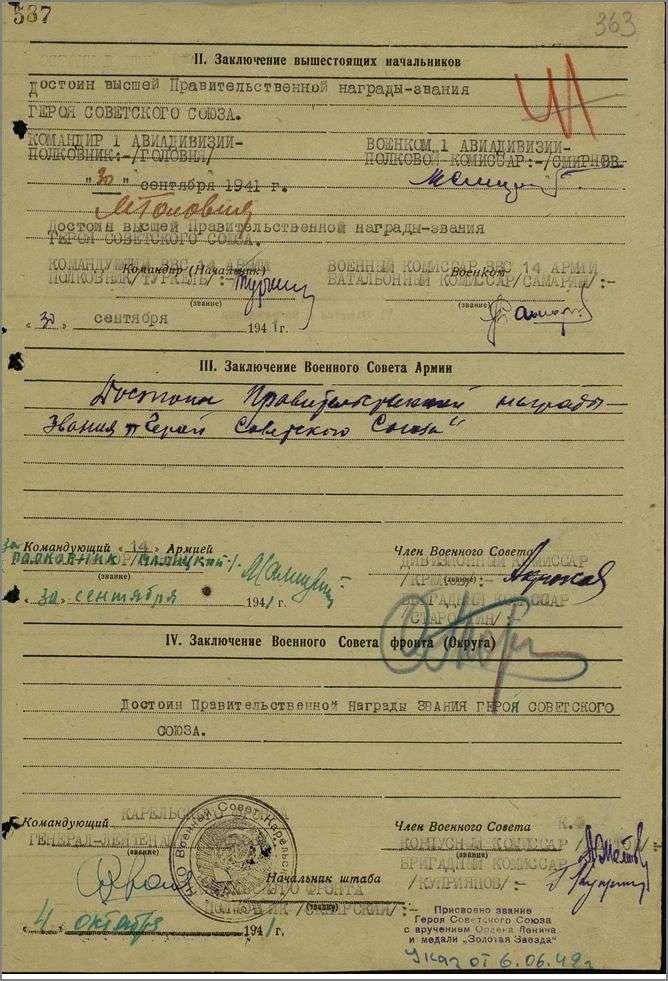 587
363
II. Заключение вышестоящих начальников
Достоин высшей Правительственной награды-звания
ГЕРОЯ СОВЕТСКОГО СОЮЗА.
КОМАНДИР 1 АВИАДИВИЗИИ-
ПОЛКОВНИК:-/ГОЛОВНЯ/
ВОЕНКОМ 1 АВИАДИВИЗИИ-
ПОЛКОВОЙ КОМИССАР:-/СМИРНОВ
"30" сентября 1941 г.
Достоин высшей Правительственной награды-звания
ГЕРОЯ СОВЕТСКОГО СОЮЗА.
КОМАНДУЮЩИЙ ВВС 14 АРМИИ
Командир (Начальник)
ПОЛКОВНИК/ТУРКЕЛЬ/:-
(звание)
ВОЕННЫЙ КОМИССАР ВВС 14 АРМИИ
Военком
БАТАЛЬОННЫЙ КОМИССАР/САМАРИН/:-
(звание)
"30" сентября 1941 г.
III. Заключение Военного Совета Армии
Достоин Правительственной награды-
звания "Герой Советского Союза"
Командующий "14" Армией
за ПОЛКОВНИК /МАЛИЦКИЙ/
(звание)
"30" сентября 1941 г.
Член Военного Совета
ДИВИЗИОННЫЙ КОМИССАР
(звание)
БРИГАДНЫЙ КОМИССАР
IV. Заключение Военного Совета фронта (Округа)
Достоин Правительственной Награды ЗВАНИЯ ГЕРОЯ СОВЕТСКОГО
СОЮЗА.
Командующий
ГЕНЕРАЛ-ЛЕЙТЕНАНТ
(звание)
Член Военного Совета
КОРПУСНЫЙ КОМИССАР
(звание)
БРИГАДНЫЙ КОМИССАР
/КУПРИЯНОВ/:-
Начальник штаба
ФРОНТА
ПОЛКОВНИК
(звание)
"4" октября 1941 г.
Присвоено звание
Героя Советского Союза
с вручением Ордена Ленина
и медали „Золотая Звезда"
Указ от 6.06.42г.